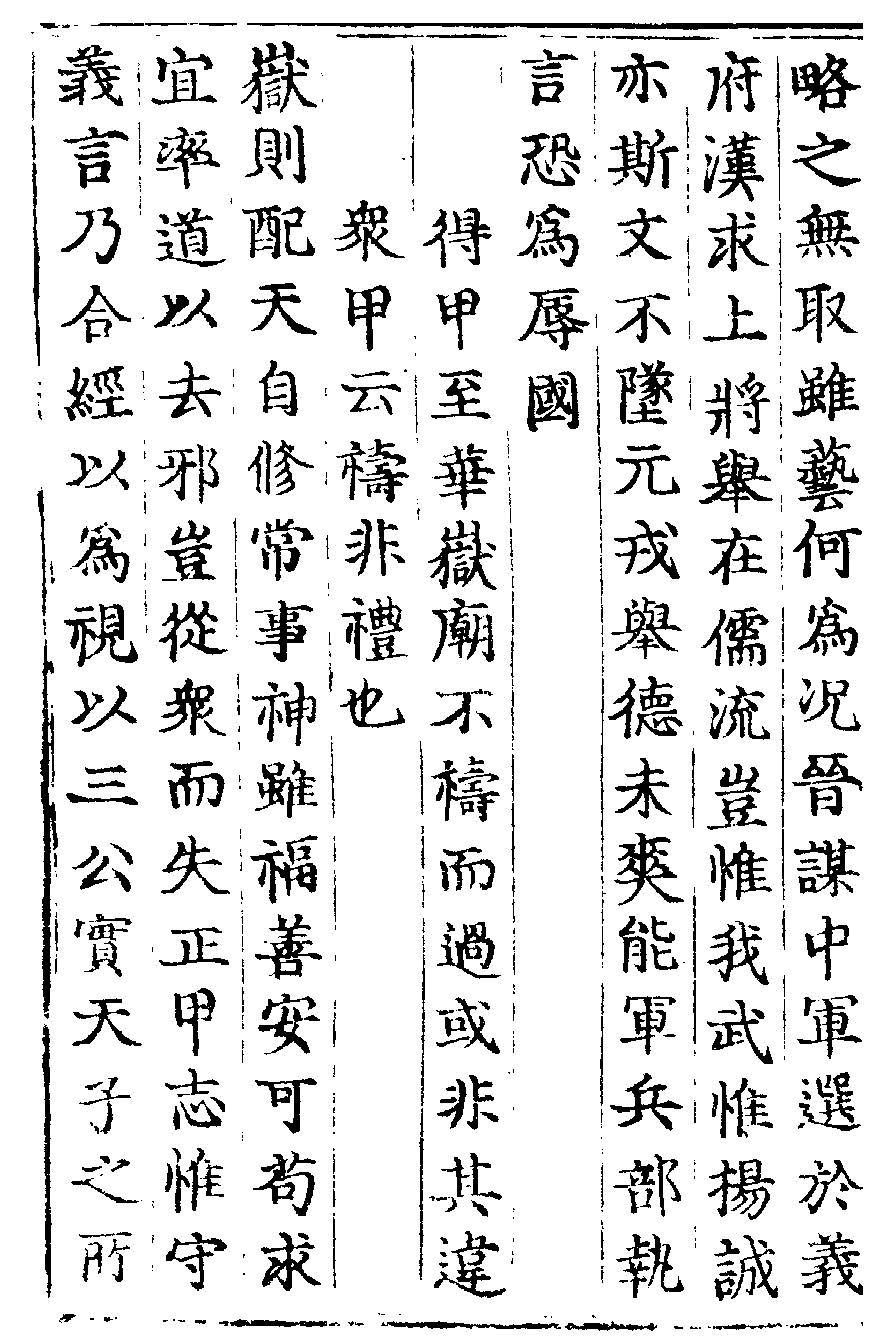 略之無取雖藝何爲況晉謀中軍選於義
府漢求上將舉在儒流豈惟我武惟揚誠
亦斯文不墜元戎舉德未爽能軍兵部執
言恐爲辱國
得甲至華嶽廟不禱而過或非其違
衆甲云禱非禮也
嶽則配天自修常事神雖福善安可苟求
宜率道以去邪豈從衆而失正甲志惟守
義言乃合經以爲視以三公實天子之所